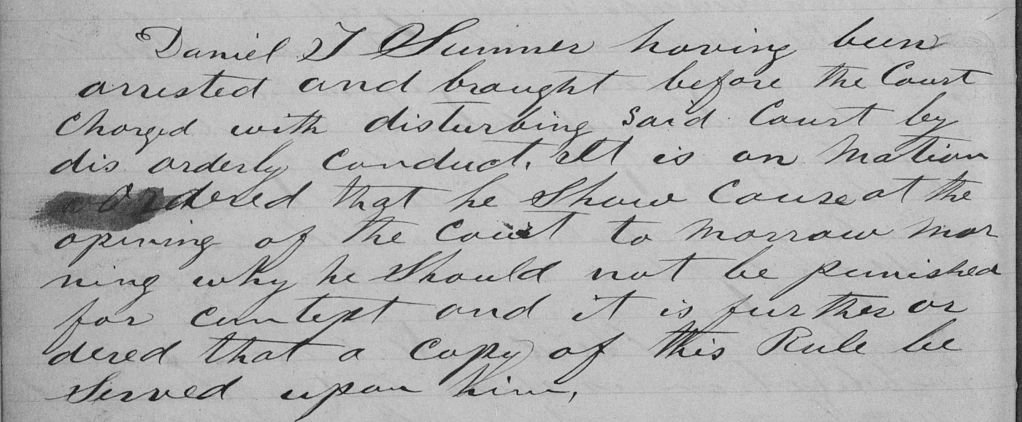 Daniel T Sumner having been
arrested and braught before the Court
Charged with disturbing said Court by
dis orderly conduct. It is on Motion
Ordered that he Show Cause at the
opining of the Court to morrow mor
ning why he Should not be punished
for contept and it is further or
dered that a Copy of this Rule be
Served upon him.